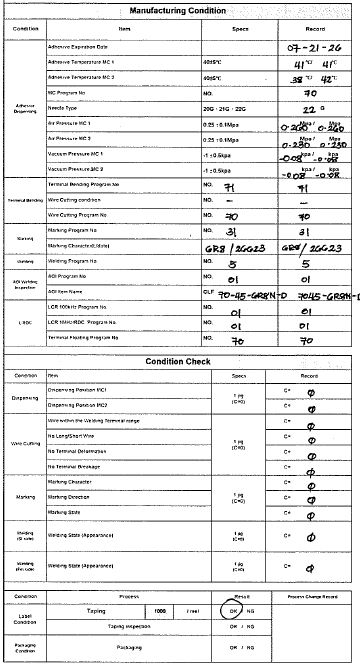 Manufacturing Condition
Condition Item Specs Record
Adhesive Expiration Date 07-21-26
Adhesive Temperature MC 1 40±5℃ 41 ℃/ 41℃
Adhesive Temperature MC 2 40±5℃ 38 ℃/ 42℃
MC Program No NO. 70
Adhesive Dispensing
Needle Type 20G - 21G - 22G 22 G
Air Pressure MC 1 0.25 ±0.1Mpa 0.260 Mpa/ 0.260 Mpa
Air Pressure MC 2 0.25 ±0.1Mpa 0.230 Mpa/ 0.230 Mpa
Vacuum Pressure MC 1 -1 ±0.5kpa -0.08 kpa/ -0.08 kpa
Vacuum Pressure MC 2 -1 ±0.5kpa -0.08 kpa/ -0.08 kpa
Terminal Bending Terminal Bending Program No NO. 71 71
Wire Cutting condition NO. - -
Wire Cutting Program No NO. 70 70
Marking Marking Program No NO. 31 31
Marking Character(Lot/date) GR8 / 26G23 GR8 / 26G23
Welding Welding Program No NO. 5 5
AOI Welding Inspection AOI Program No NO. 01 01
AOI Item Name CLF 70-45-GR8N-D 7045-GR8N-D
LCR 100kHz Program No. NO. 01 01
L/RDC LCR 1MHz/RDC Program No. NO. 01 01
Terminal Floating Program No NO. 70 70
Condition Check
Condition Item Specs Record
Dispensing Dispensing Position MC1 1 pg (C=0) C= 0
Dispensing Position MC2 C= 0
Wire Cutting Wire within the Welding Terminal range 1 pg (C=0) C= 0
No Long/Short Wire C= 0
No Terminal Deformation C= 0
No Terminal Breakage C= 0
Marking Marking Character 1 pg (C=0) C= 0
Marking Direction C= 0
Marking State C= 0
Welding Welding State (Appearance) 1 pg (C=0) C= 0
Welding Welding State (Appearance) 1 pg (C=0) C= 0
Condition Process Result Process Change Record
Label Condition Taping 1000 / reel OK / NG
Taping Inspection OK / NG
Packaging Condition Packaging OK / NG